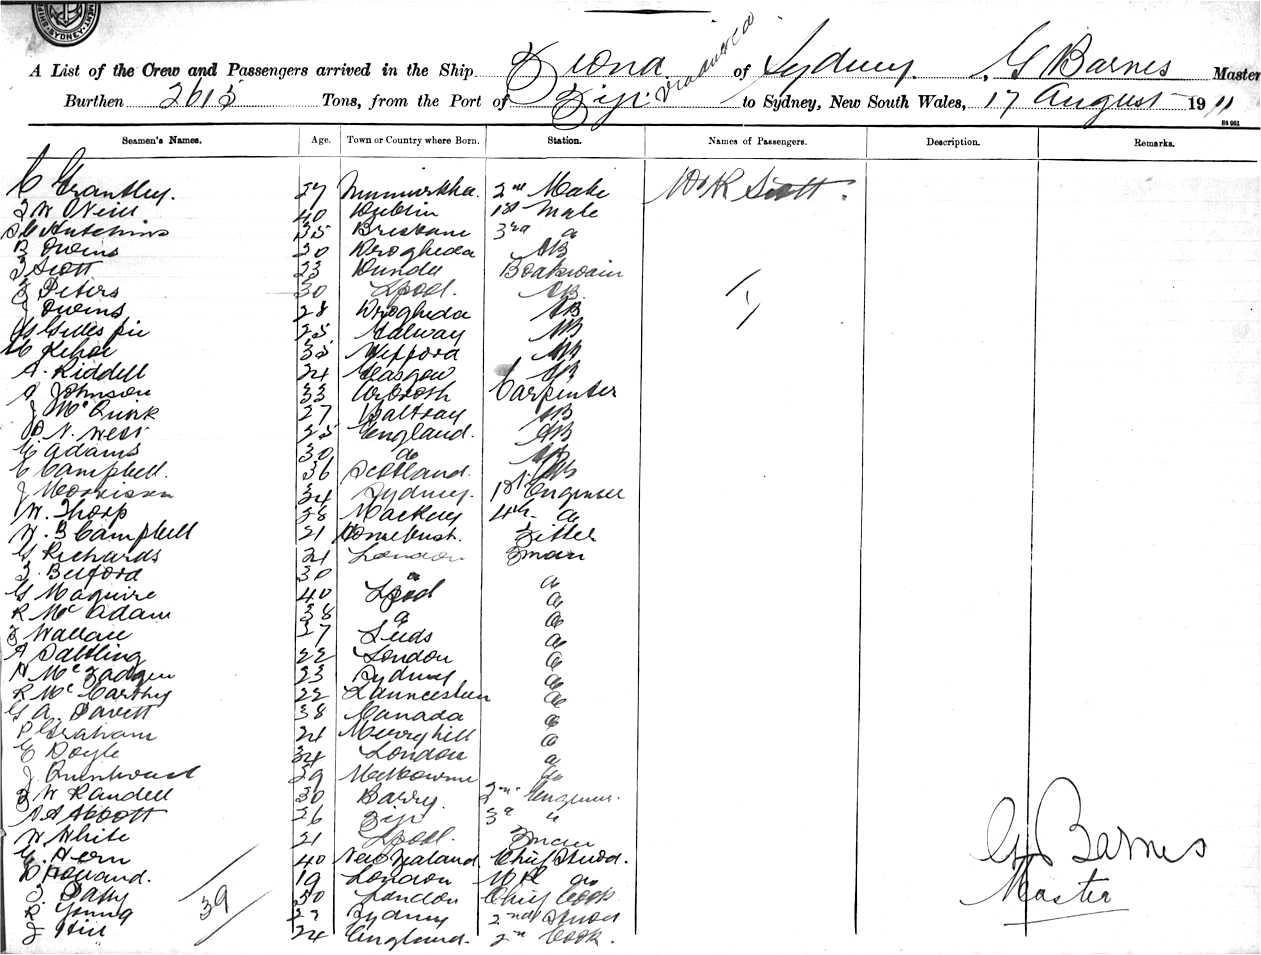 SYDNEY
A List of the Crew and Passengers arrived in the Ship Fiona of Sydney, G Barnes Master
Burthen 2615 Tons, from the Port of Fiji to Sydney, New South Wales, 17 August 1911
Seamen's Names. Age. Town or Country where Born. Station. Names of Passengers. Description. Remarks.
C Grantley. 27 2nd Mate Scott
W O'Neill 40 Dublin 1st Mate
Hutchins 35 Brisbane 3rd do
Owens 30 Drogheda AB
Scott 23 Dundee Boatswain
Peters 30 Lpool. AB
J Owens 28 Drogheda AB
Gillespie 25 Galway AB
Kehoe 35 Wexford AB
A. Riddell 24 Glasgow AB
Johnson 33 Arbroth Carpenter
J McQuirk 27 Baltray AB
N. West 25 England. AB
C Adams 30 do AB
C Campbell. 36 Scotland. AB
J Morrison 34 Sydney. 1st Engineer
W. Thorp 28 Mackay 4th do
W. B Campbell 21 Homebush. Fitter
G Richards 21 London Fman
F. Belford 30 do do
G Maguire 40 Lpool do
R McAdam 38 do do
F Wallace 27 Leeds do
A Saltling 22 London do
H McFadgen 23 Sydney do
R McCarthy 22 Launcestun do
G A. Pavett 38 Canada do
P Graham 24 Merryhill do
C Doyle 34 London do
J. 39 Melbourne do
F W Randell 30 Barry. 2nd Engineer.
A Abbott 26 Fiji 3rd "
W White 21 Lpool. Fman
G. Horn 40 New Zealand. Chief Stwd.
Holland. 19 London do
30 London Chief Cook
R Young 22 Sydney 2nd Stwd
J Hill 24 England. 2n Cook.
39
G Barnes
Master